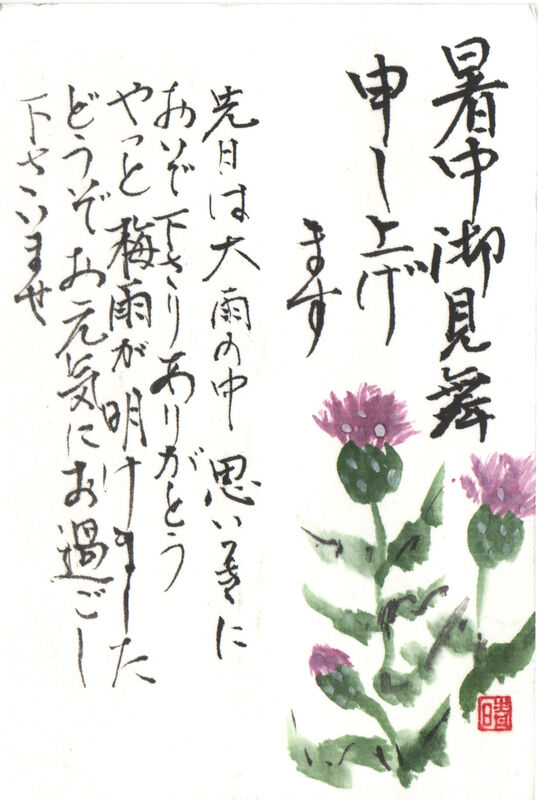 暑中御見舞
申し上げ
ます
先日は大雨の中 思いきに
おいで下さりありがとう
やっと梅雨が明けました
どうぞお元気にお過ごし
下さいませ
晴